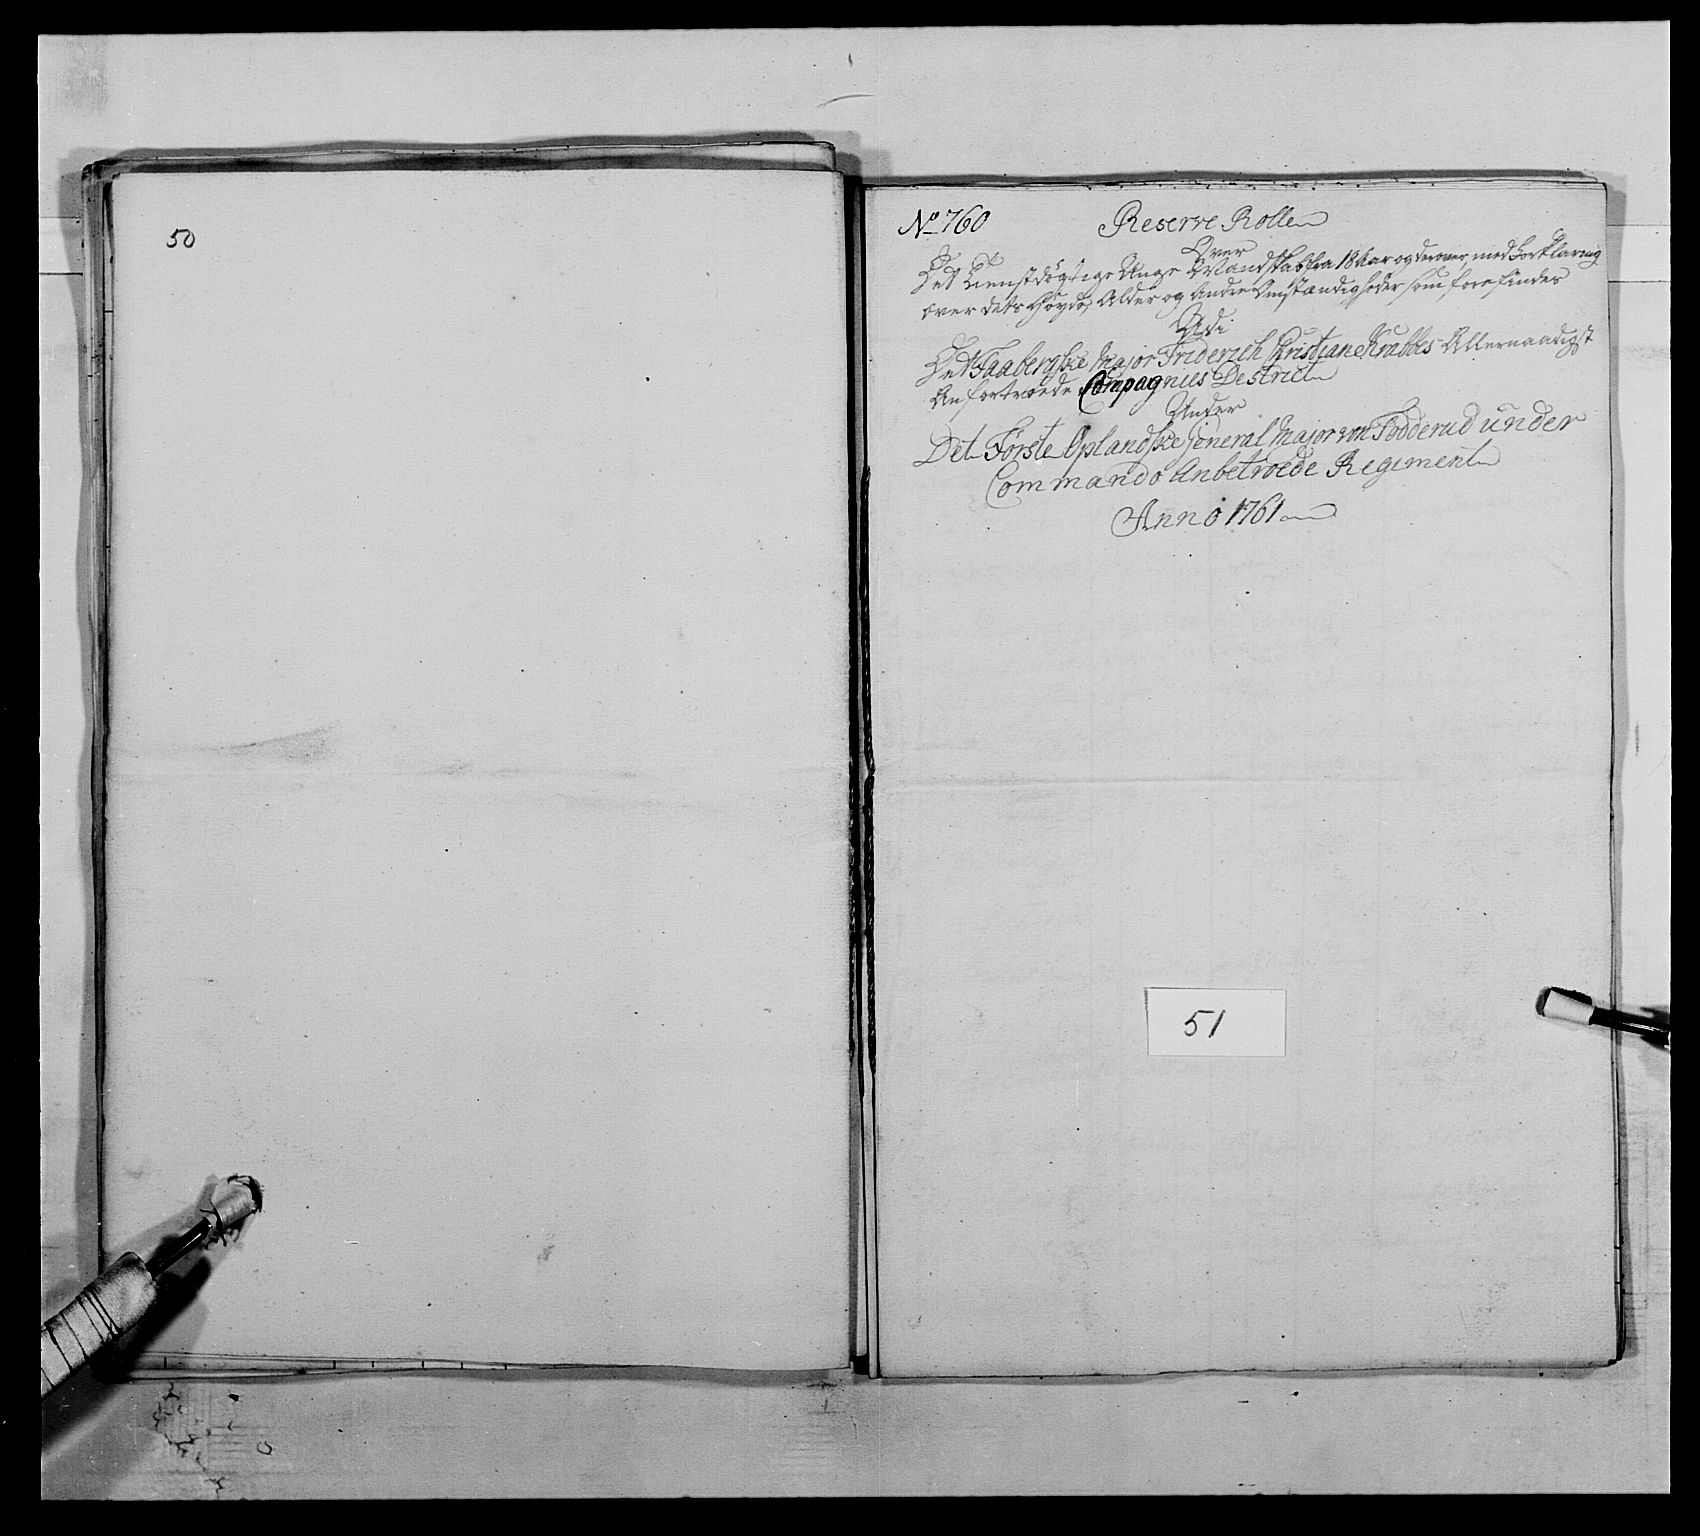 50
No 760
Reserve Rolle
Over
Det Tienstdøgtige Unge Mandskab fra 18 Aar og derover, med Forklaring
over dets Høyde, Alder og Andre Omstændigheder som forefindes
Udi
Det Faabergske Major Friderich Christian Krabbes Allernaadigst
Anfortroede Compagnies Destrict
Under
Det Første Oplandske General Major von Fødderud under
Commando Anbetroede Regiment
Anno 1761
51